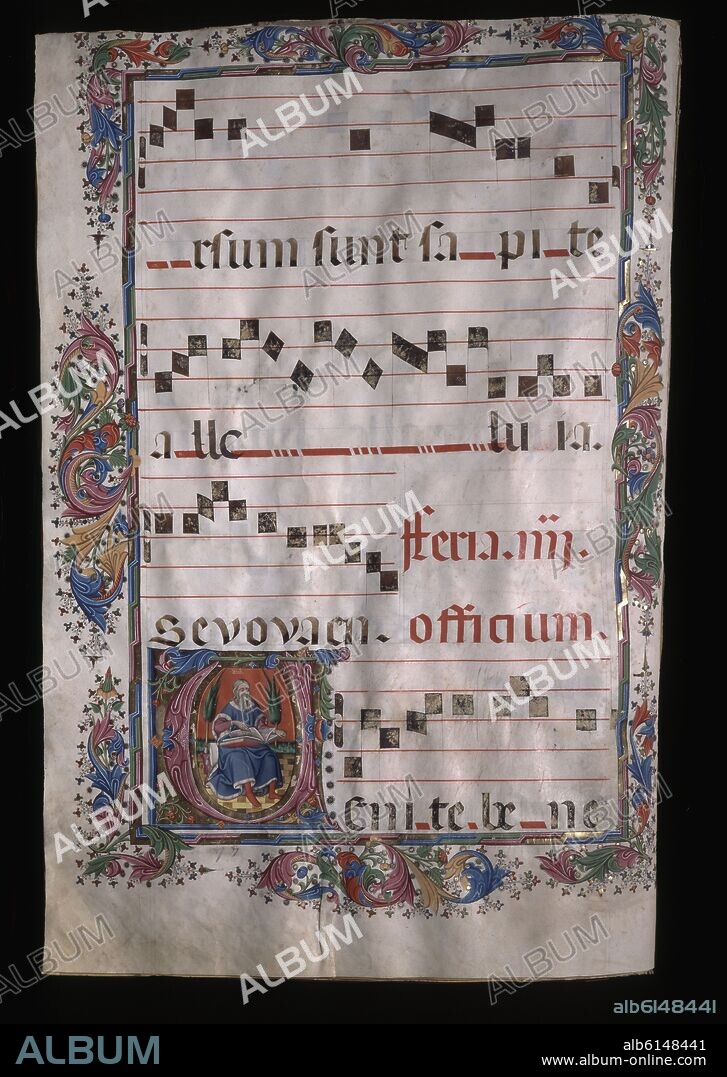 rsum sunt sa pi te
a lle lu ia.
feria. iiij.
Sevovaen. officium.
Veni te be ne
ALBUM
alb6148441
ALBUM
alb6148441
www.album-online.com